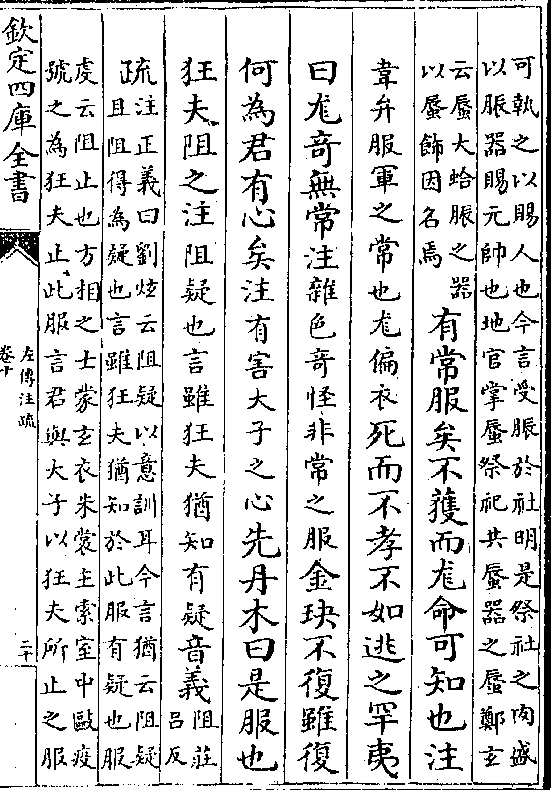 可執之以賜人也今言受脤於社明是祭社之肉盛
以脤器賜元帥也地官掌蜃祭祀共蜃器之蜃鄭玄
云蜃大蛤脤之器
以蜃飾因名焉
有常服矣不獲而尨命可知也注
韋弁服軍之常也尨偏衣死而不孝不如逃之罕夷
曰尨奇無常注雜色奇怪非常之服金玦不復雖復
何為君有心矣注有害大子之心先丹木曰是服也
狂夫阻之注阻疑也言雖狂夫猶知有疑音義
阻莊
呂反
疏注正義曰劉炫云阻疑以意訓耳今言猶云阻疑
且阻得為疑也言雖狂夫猶知於此服有疑也服
虔云阻止也方相之士蒙玄衣朱裳主索室中毆疫
號之為狂夫止此服言君與大子以狂夫所止之服
欽定四庫全書
左傳注疏
卷十
二十